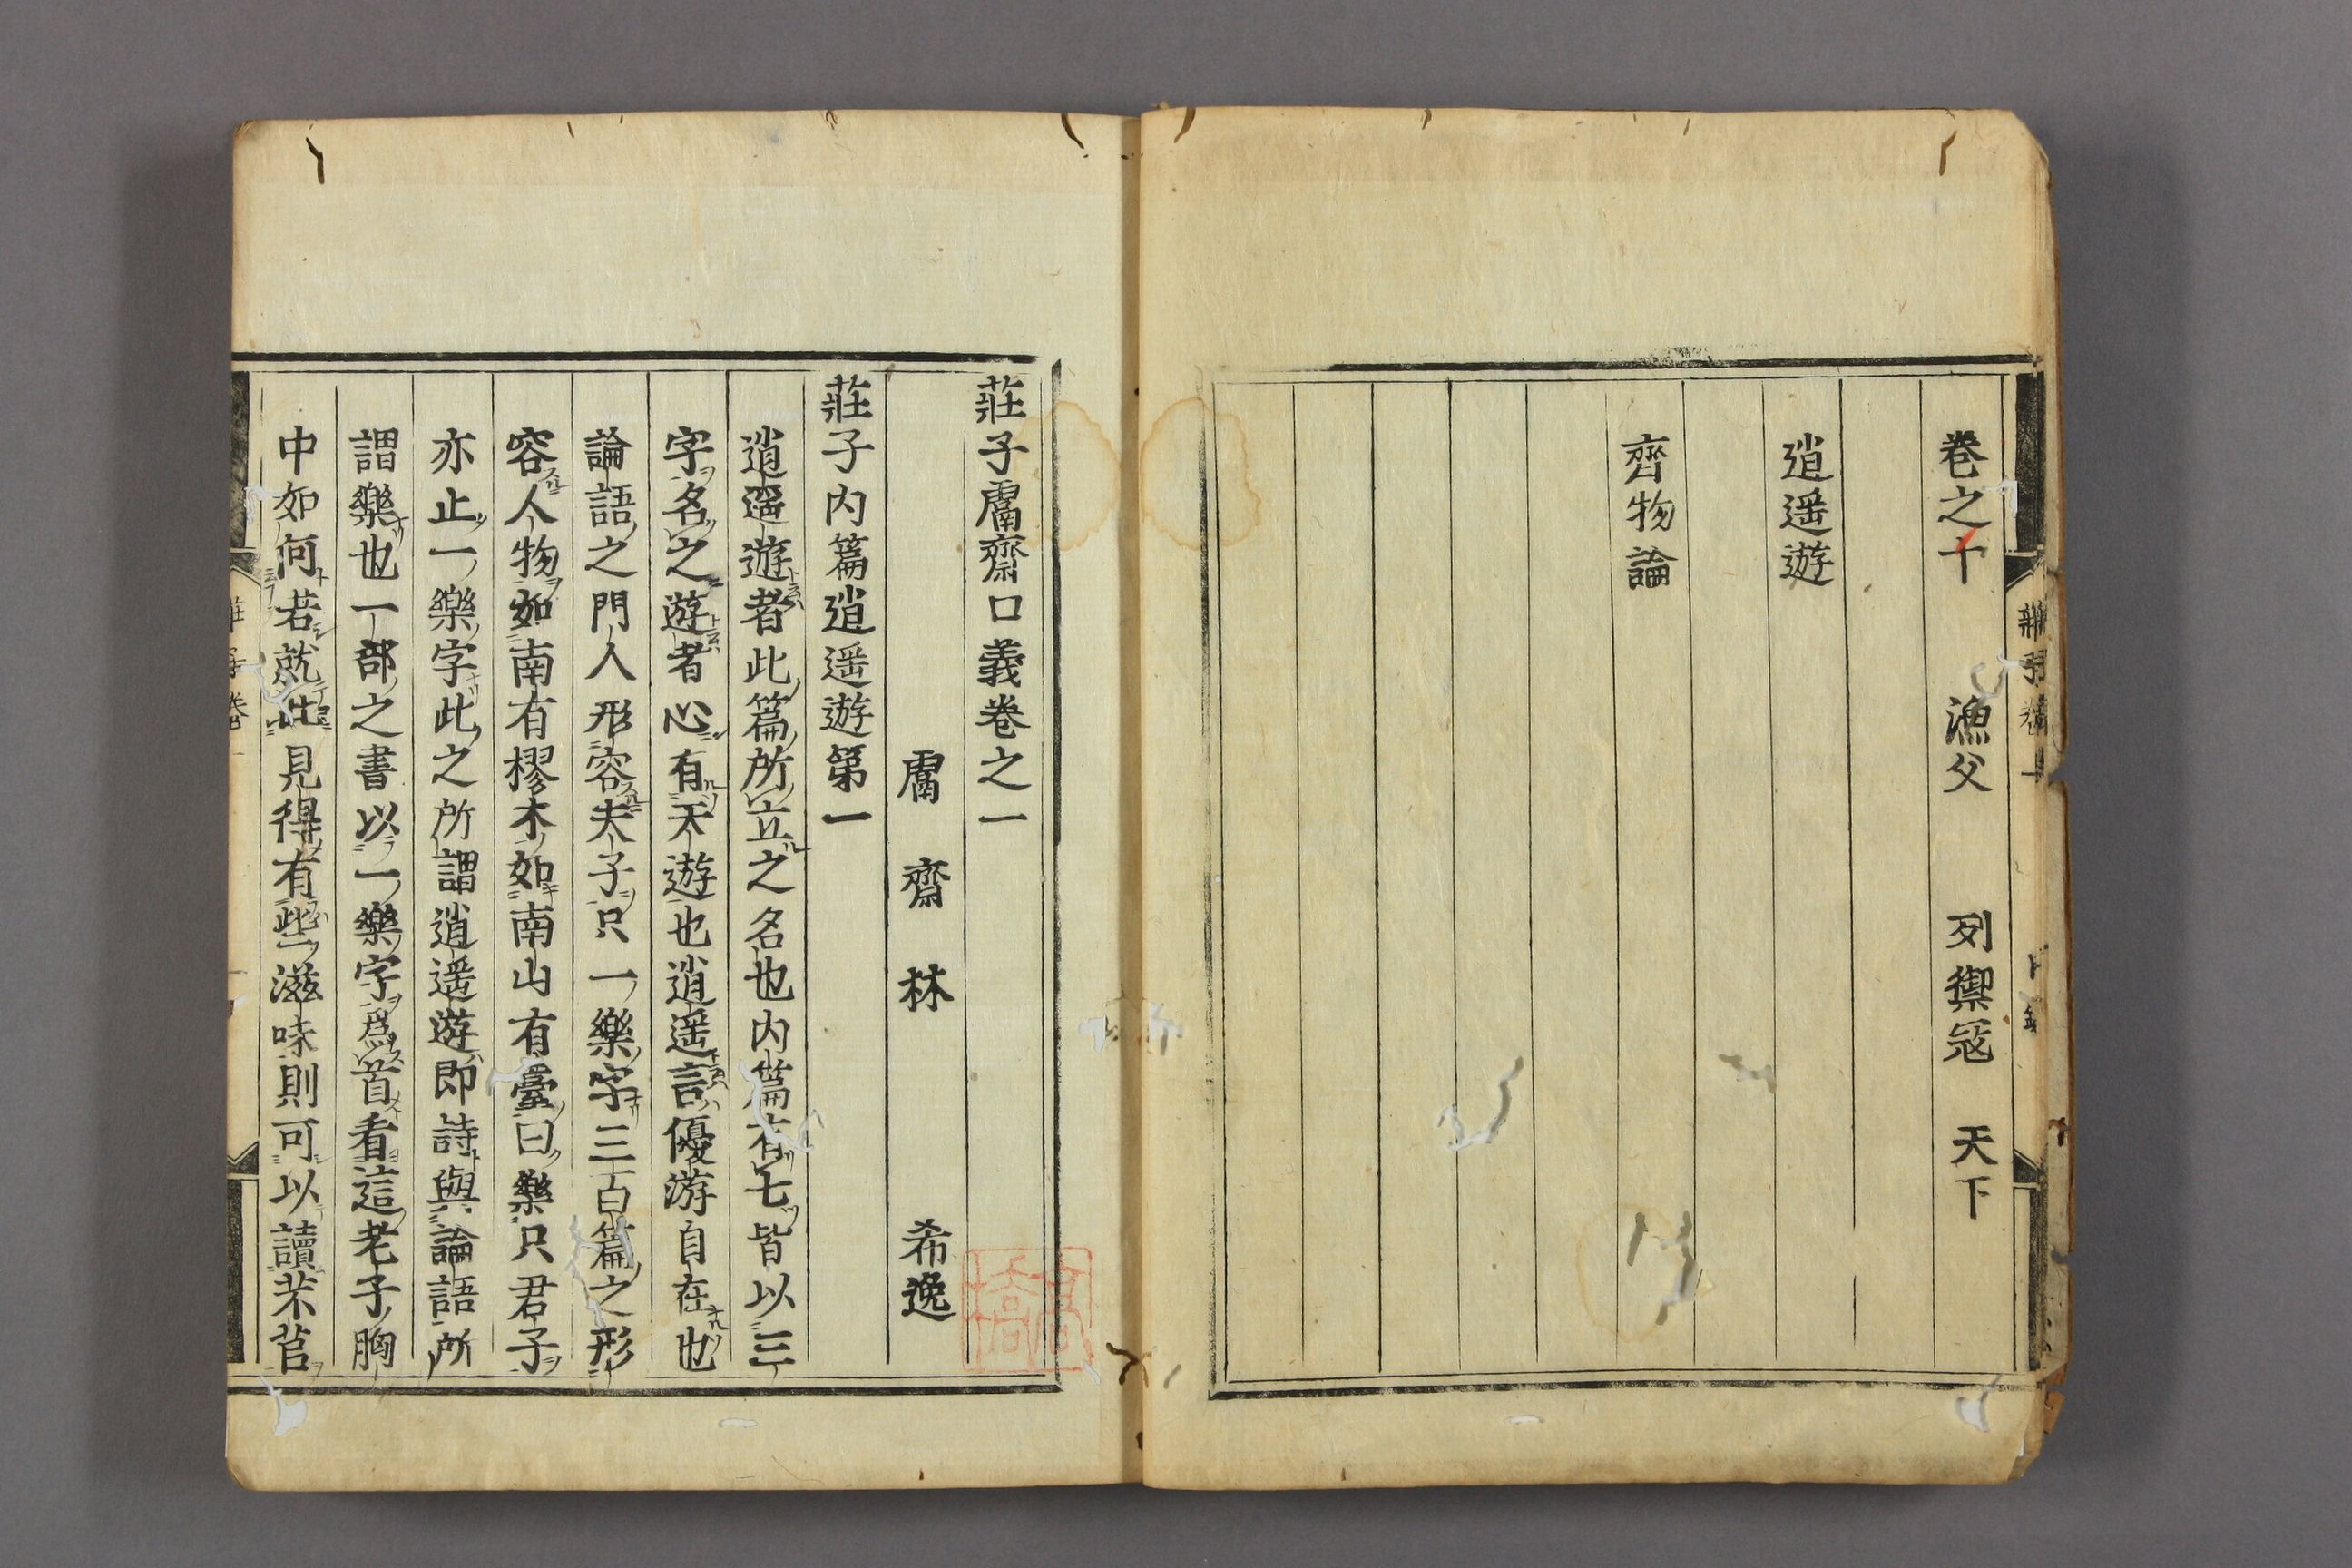 卷之十　漁父　列禦寇　天下
逍遥遊
齊物論
莊子鬳齋口義卷之一
鬳齋林　希逸
莊子内篇逍遥遊第一
逍遥遊者此篇所立之名也内篇有七皆以三
字名之遊者心有天遊也逍遥言優游自在也
論語之門人形容夫子只一樂字三百篇之形
容人物如南有樛木如南山有臺曰樂只君子
亦止一樂字此之所謂逍遥遊即詩與論語所
謂樂也一部之書以一樂字爲首看這老子胸
中如何若就此見得有些滋味則可以讀芣苢
高橋